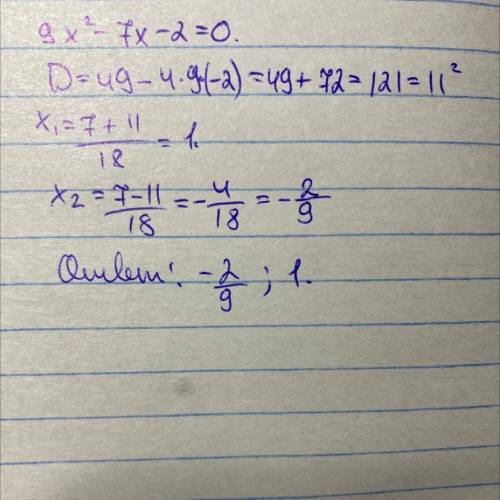 9x² - 7x - 2 = 0.
D = 49 - 4·9·(-2) = 49 + 72 = 121 = 11²
x₁ = (7 + 11)/18 = 1.
x₂ = (7 - 11)/18 = -4/18 = -2/9
Ответ: -2/9 ; 1.